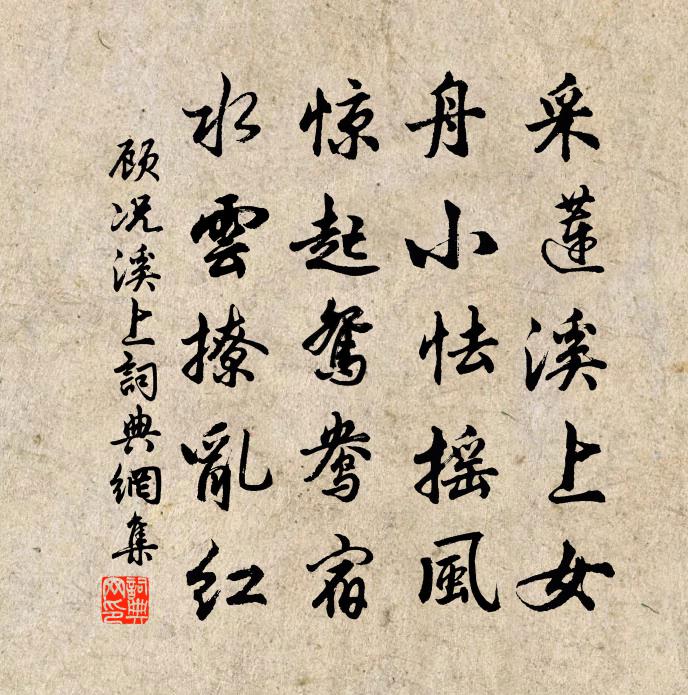 采蓮溪上女
舟小怯摇風
惊起鴛鴦宿
水雲撩亂红
顾况溪上詞典網集
詞典網印